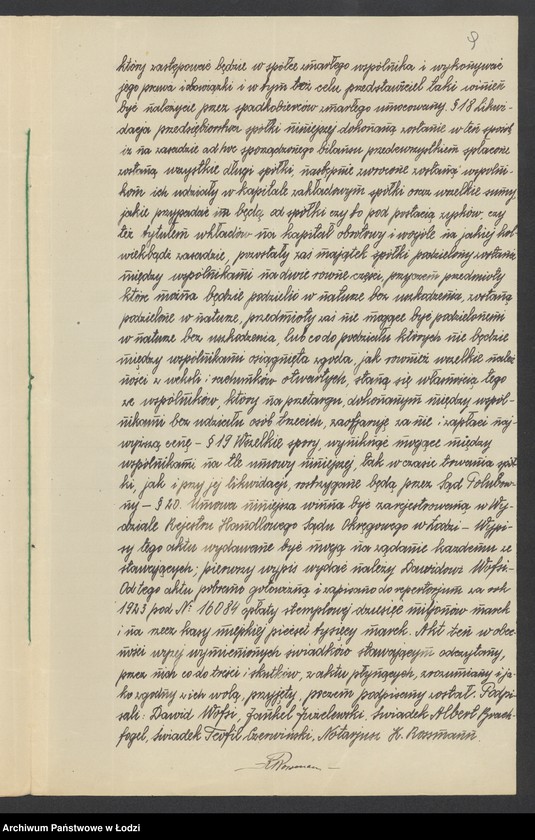 9
który zastępować będzie w spółce zmarłego wspólnika i wykonywać
jego prawa i obowiązki i w tym też celu przedstawiciel taki winien
być należycie przez spadkobierców zmarłego umocowany. § 18 Likwi-
dacja przedsiębiorstwa spółki niniejszej dokonaną zostanie w ten sposób,
iż na zasadzie ad hoc sporządzonego bilansu przedewszystkiem spłacone
zostaną wszystkie długi spółki, następnie zwrócone zostaną wspólni-
kom ich udziały w kapitale zakładowym spółki oraz wszelkie sumy,
jakie przypadać im będą od spółki czy to pod postacią zysków, czy
też tytułem wkładów na kapitał obrotowy i wogóle na jakiej kol-
wiekbądź zasadzie, pozostały zaś majątek spółki podzielony zostanie
między wspólnikami na dwie równe części, przyczem przedmioty
które można będzie podzielić w naturze bez uszkodzenia, zostaną
podzielone w naturze, przedmioty zaś nie mogące być podzielonemi
w naturze bez uszkodzenia, lub co do podziału których nie będzie
między wspólnikami osiągnięta zgoda, jak również wszelkie należ
ności z weksli i rachunków otwartych, staną się własnością tego
ze wspólników, który na przetargu, dokonanym między wspól-
nikami bez udziału osób trzecich, zaofiaruje za nie i zapłaci naj-
wyższą cenę – § 19 Wszelkie spory, wyniknąć mogące między
wspólnikami na tle umowy niniejszej, tak w czasie trwania spół
ki, jak i przy jej likwidacji, rozstrzygane będą przez Sąd Polubow-
ny – § 20. Umowa niniejsza winna być zarejestrowaną w Wy-
dziale Rejestru Handlowego Sądu Okręgowego w Łodzi – Wypi-
sy tego aktu wydawane być mogą na żądanie każdemu ze
stawających; pierwszy wypis wydać należy Dawidowi Wofsi –
Od tego aktu pobrano gotowizną i zapisano do repertorjum za rok
1923 pod № 16084 opłaty stemplowej dziesięć miljonów marek
i na rzecz kasy miejskiej pięćset tysięcy marek. Akt ten w obec
ności wyżej wymienionych świadków stawającym odczytany,
przez nich co do treści i skutków, z aktu płynących, zrozumiany i ja-
ko zgodny z ich wolą, przyjęty, poczem podpisany został. Podpi-
sali: Dawid Wofsi, Jankel Juzelewski, świadek Albert
fogel, świadek Teofil Czerwiński, Notarjusz K. Rossmann
Archiwum Państwowe w Łodzi